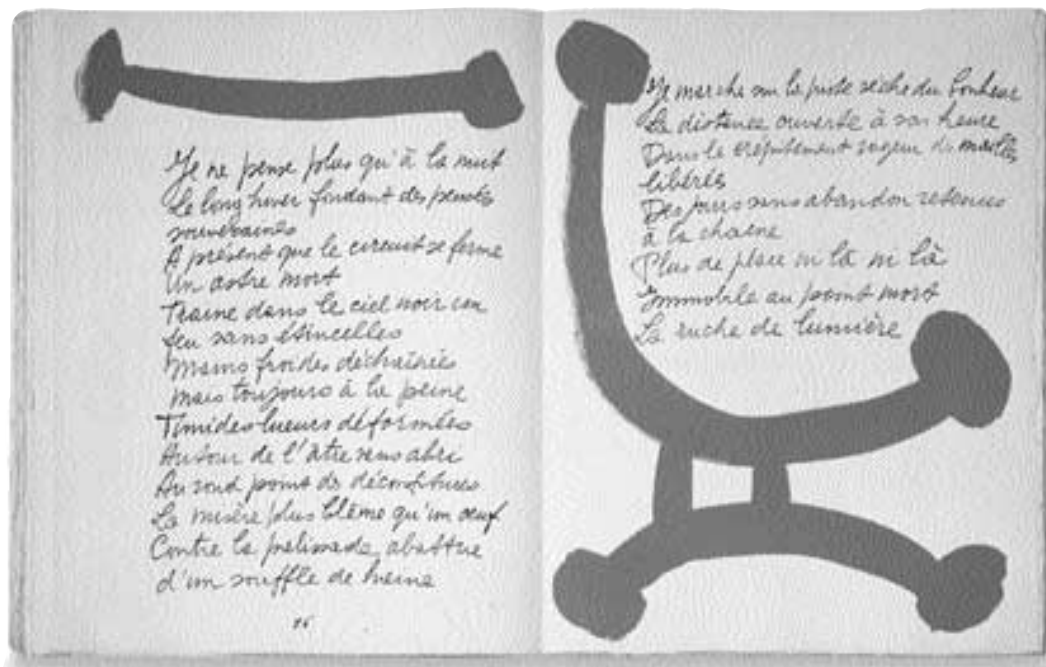 Je ne pense plus qu'à la nuit
Le long hiver fondant des pensées
souveraines
A présent que le circuit se ferme
Un astre mort
Traine dans le ciel noir un
feu sans étincelles
Mains froides déchaînées
mais toujours à la peine
Timides lueurs déformées
Autour de l'âtre sans abri
Au rond point des déconfitures
La misère plus blême qu'un œuf
Contre la palissade abattue
d'un souffle de haine
Je marche sur la piste sèche du bonheur
La distance ouverte à son heure
Dans le crépitement rageur des mailles
libérés
Des jours sans abandon retenus
à la chaîne
Plus de place ni là ni là
Immobile au point mort
La ruche de lumière